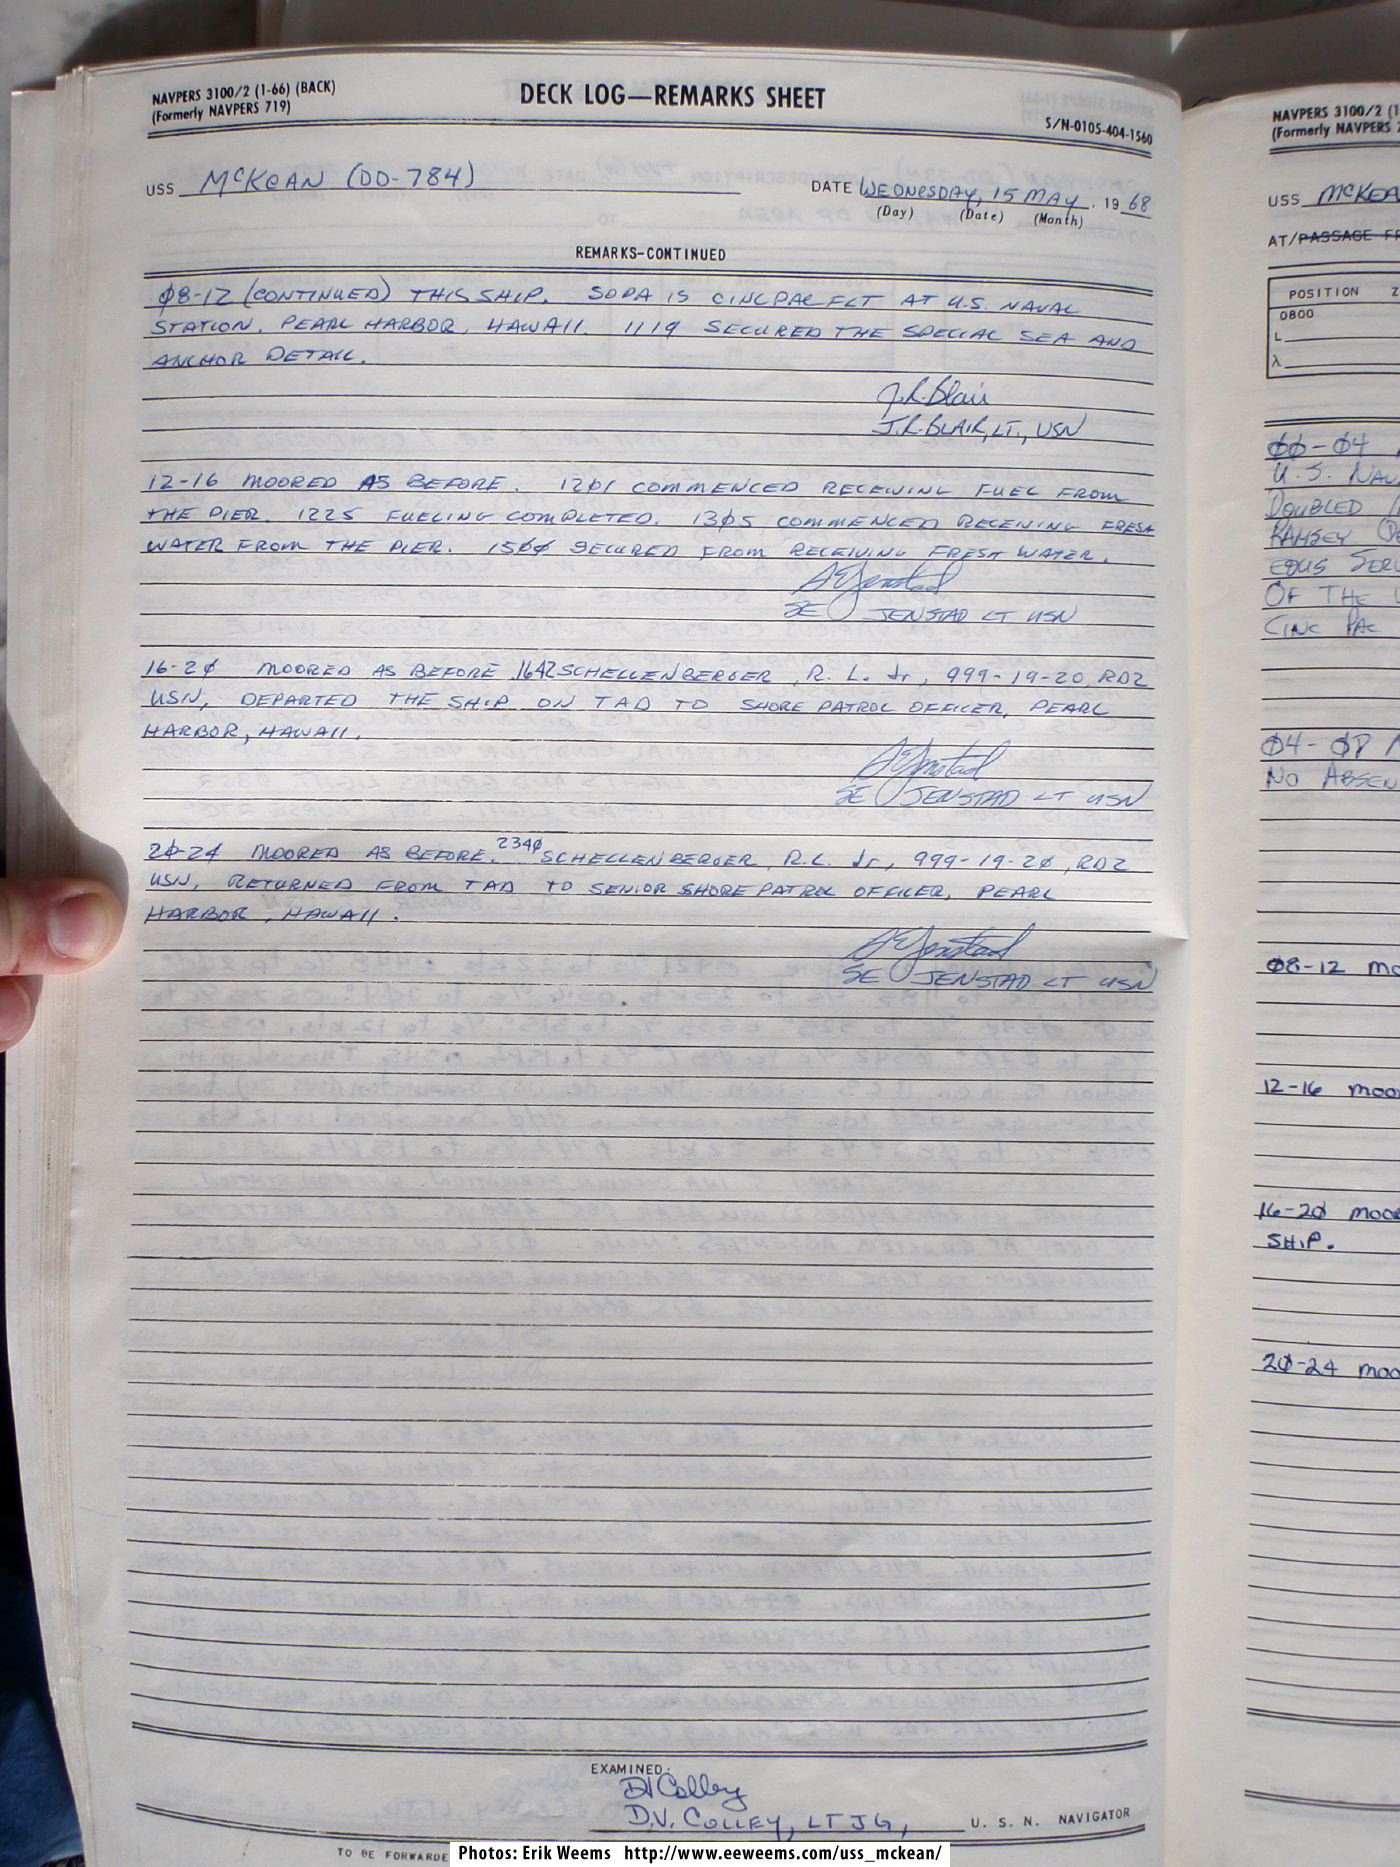 NAVPERS 3100/2 (1-66) (BACK)
(Formerly NAVPERS 719)
DECK LOG—REMARKS SHEET
S/N-0105-404-1560
USS McKEAN (DD-784)
DATE WEDNESDAY, 15 MAY, 19 68
(Day) (Date) (Month)
REMARKS-CONTINUED
Ø8-12 (CONTINUED) THIS SHIP. SOPA IS CINCPACFLT AT U.S. NAVAL
STATION, PEARL HARBOR, HAWAII. 1119 SECURED THE SPECIAL SEA AND
ANCHOR DETAIL.
J.R. Blair
J.R. BLAIR, LT., USN
12-16 MOORED AS BEFORE. 12Ø1 COMMENCED RECEIVING FUEL FROM
THE PIER. 1225 FUELING COMPLETED. 13Ø5 COMMENCED RECEIVING FRESH
WATER FROM THE PIER. 15ØØ SECURED FROM RECEIVING FRESH WATER.
SE Jenstad
SE JENSTAD LT USN
16-2Ø MOORED AS BEFORE 1642 SCHELLENBERGER, R. L. Jr, 999-19-20, RD2
USN, DEPARTED THE SHIP ON TAD TO SHORE PATROL OFFICER, PEARL
HARBOR, HAWAII.
SE Jenstad
SE JENSTAD LT USN
2Ø-24 MOORED AS BEFORE. 234Ø SCHELLENBERGER, R.L. Jr, 999-19-2Ø, RD2
USN, RETURNED FROM TAD TO SENIOR SHORE PATROL OFFICER, PEARL
HARBOR, HAWAII.
SE Jenstad
SE JENSTAD LT USN
EXAMINED:
DV Colley
D.V. COLLEY, LTJG, U. S. N. NAVIGATOR
TO BE FORWARDE
Photos: Erik Weems http://www.eeweems.com/uss_mckean/
NAVPERS 3100/2 (1
(Formerly NAVPERS 7
USS McKEA
AT/PASSAGE FR
POSITION Z
0800
L
λ
ØØ-Ø4
U.S. NAV
DOUBLED
RAMSEY
EOUS SERV
OF THE U
CINC PAC
Ø4-Ø8 M
NO ABSEN
Ø8-12 MO
12-16 MOO
16-2Ø MOO
SHIP.
2Ø-24 MOO